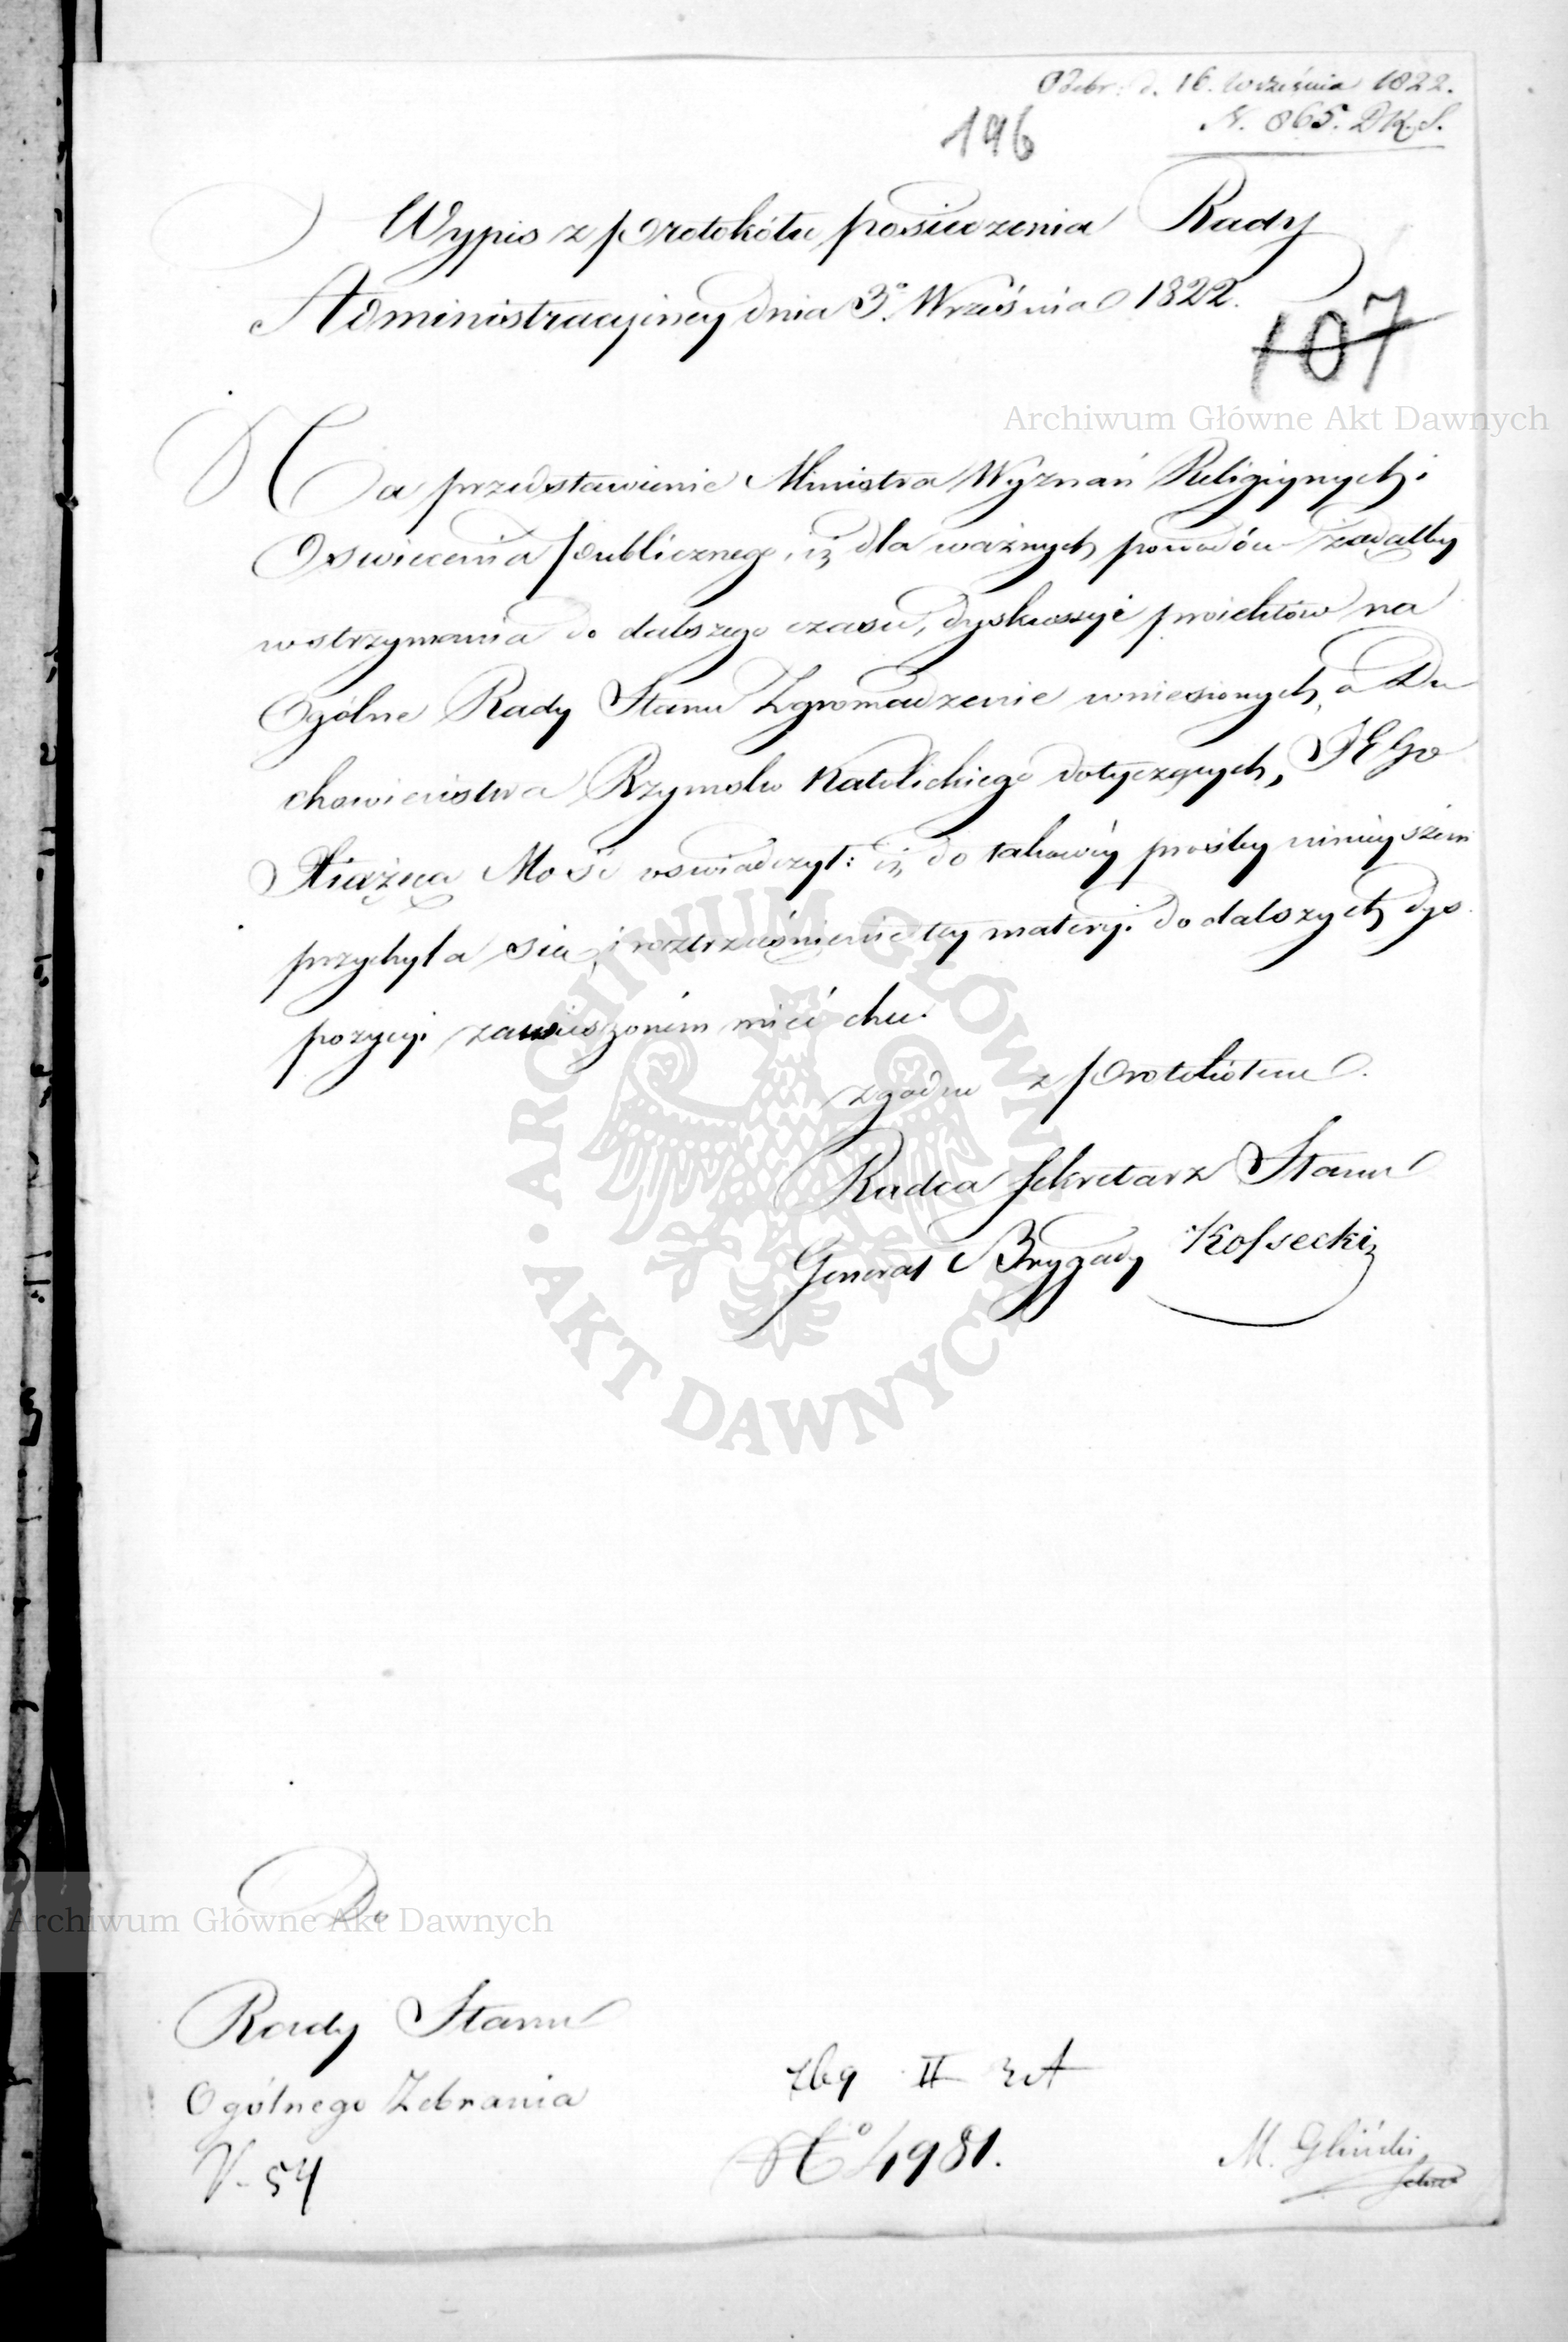 Odebr: d. 16. Września 1822.
N. 865. D.K.S.
196
Wypis z protokółu posiedzenia Rady
Administracyiney dnia 3º Września 1822.
107
Archiwum Główne Akt Dawnych
Na przedstawienie Ministra Wyznań Religiynych i
Oswiecenia publicznego, iż dla ważnych powodów żądałby
wstrzymania do dalszego czasu, dyskussyi proiektów na
Ogólne Rady Stanu Zgromadzenie wniesionych, a Du
chowieństwa Rzymsko Katolickiego dotyczących, JEGo
Xiążęca Mość oswiadczył: iż do takowéy prośby ninieyszem
przychyla się, i roztrząśnienie téy materyi do dalszych dys
pozycyi zawieszoném mieć chce.
zgodno z protokółem
Radca Sekretarz Stanu
Generał Brygady Kossecki
ARCHIWUM GŁÓWNE • AKT DAWNYCH •
Do
Archiwum Główne Akt Dawnych
Rady Stanu
Ogólnego Zebrania
V. 54
II
Nº 4981.
M. Gliński